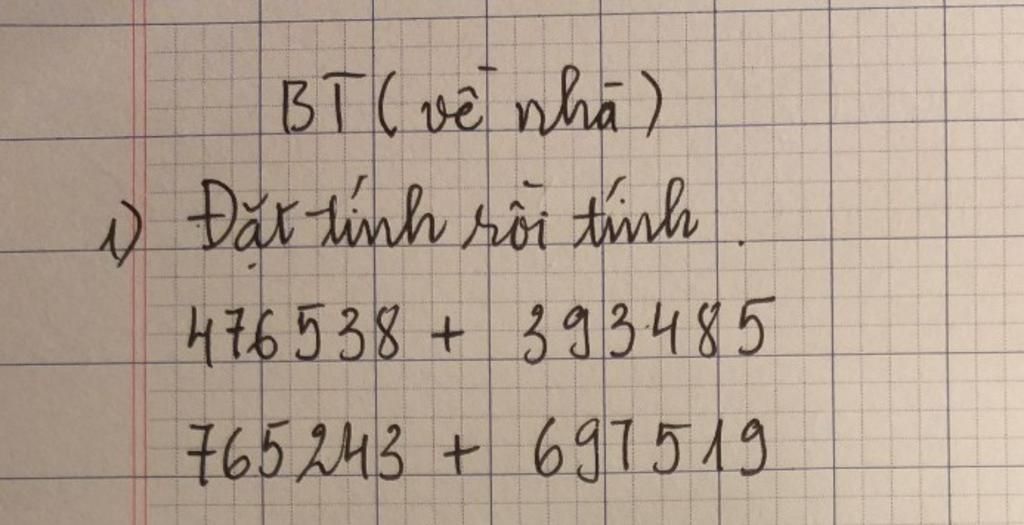 BT (về nhà)
1) Đặt tính rồi tính.
476538 + 393485
765243 + 697519